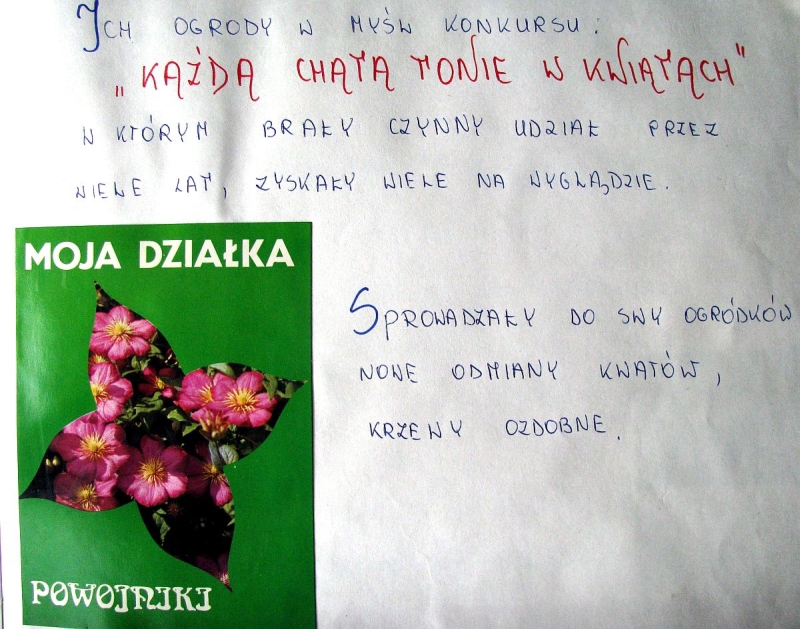 ICH OGRODY W MYŚW KONKURSU:
„KĄŻDĄ CHĄTĄ TONIE W KWIĄTĄCH"
W KTÓRYM BRAŁY CZYNNY UDZIAŁ PRZEZ
WIELE LAT, ZYSKAŁY WIELE NA WYGLĄDZIE.
MOJA DZIAŁKA
SPROWADZAŁY DO SWY OGRÓDKÓW
NOWE ODMIANY KWATÓW,
KRZEWY OZDOBNE.
POWOJNIKI